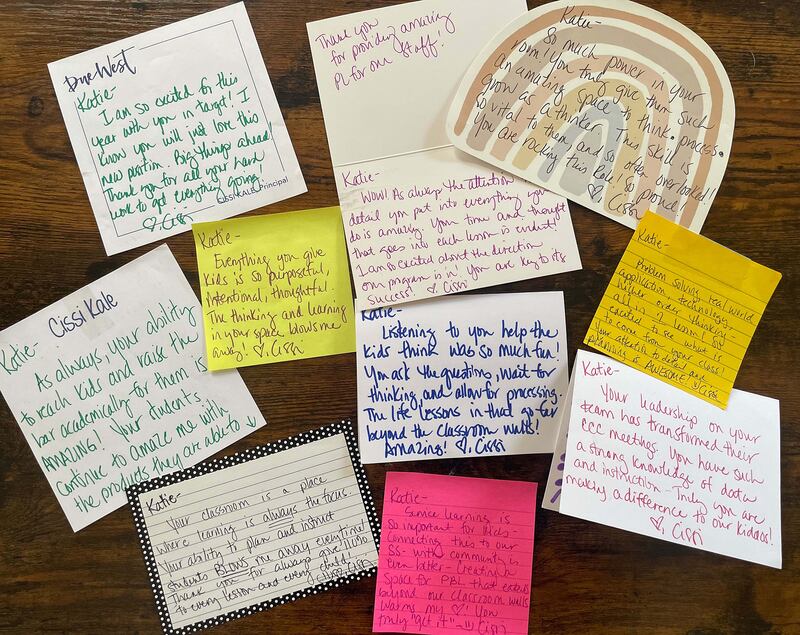 Due West
Katie-
I am so excited for this
year with you in target! I
know you will just love this
new position. Big things ahead!
Thank you for all your hard
work to get everything going.
♡, Cissi
CISSI KALE, Principal
Thank you
for providing amazing
PL for our staff!
Katie-
WOW! As always the attention
detail you put into everything you
do is amazing. You time and thought
that goes into each lesson is evident!
I am so excited about the direction
our program is in! You are key to its
success! ♡, Cissi
Katie-
So much power in your
room! You truly give them such
an amazing space to think, process,
grow as a thinker. This skill is
so vital to them and so often overlooked!
You are rocking this role! So proud!
♡, Cissi
Katie-
Everything you give
kids is so purposeful,
intentional, thoughtful.
The thinking and learning
in your space blows me
away! ♡, Cissi
Katie-
Problem solving, real world
application, technology,
higher order thinking-
all in 1 lesson! So
excited to see what is
to come from your class!
Your attention to detail and
planning is AWESOME! Cissi
Cissi Kale
Katie-
As always, your ability
to reach kids and raise the
bar academically for them is
AMAZING! Your students
continue to amaze me with
the products they are able to ↓
Katie-
Listening to you help the
kids think was so much fun!
You ask the questions, wait for
thinking and allow for processing.
The life lessons in that go far
beyond the classroom walls!
Amazing! ♡, Cissi
Katie-
Your leadership on your
team has transformed their
CCC meetings. You have such
a strong knowledge of data
and instruction. Truly you are
making a difference to our kiddos!
♡, Cissi
Katie-
Your classroom is a place
where learning is always the focus.
Your ability to plan and instruct
students BLOWS me away everytime!
Thank you for always give 110%
to every lesson and every child!
Cissi
Katie-
Service learning is
so important for kids-
Connecting this to our
SS- with community is
even better- Creating a
space for PBL that extends
beyond our classroom walls
warms my ♡! You
truly "get it" Cissi